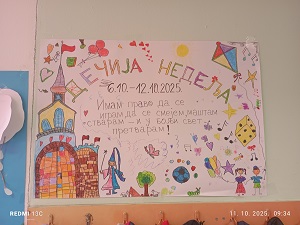 ДЕЧИЈА НЕДЕЉА
6.10. – 12.10.2025.
Имам право да се
играм, да се смејем, маштам
стварам – и у бољи свет
претварам!
REDMI 12C
11.10.2025. 09:34